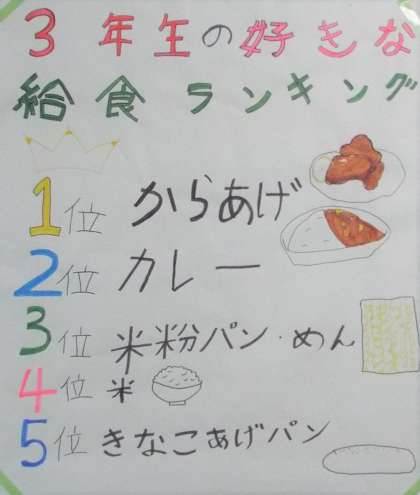 3年生の好きな
給食ランキング
1位 からあげ
2位 カレー
3位 米粉パン・めん
4位 米
5位 きなこあげパン